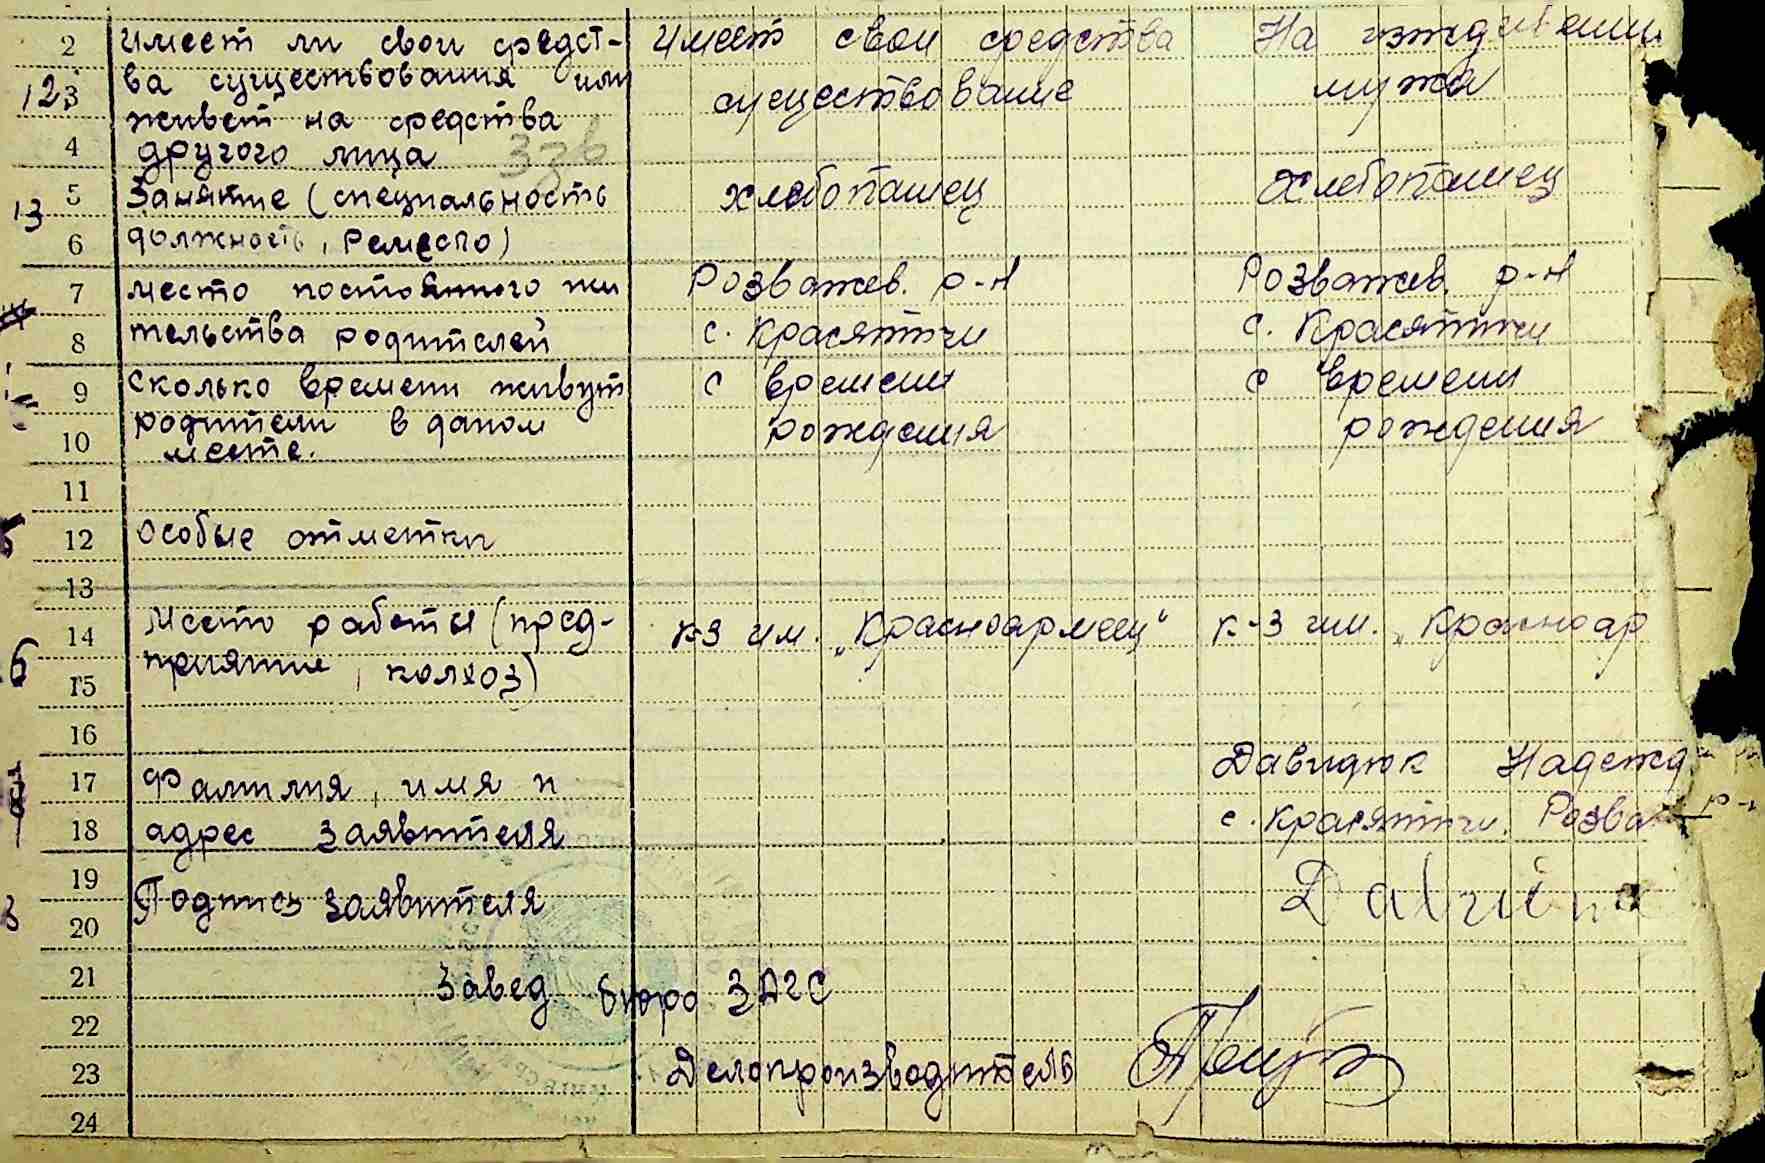 2 имеет ли свои средст- Имеет свои средства На иждивении
12 3 ва существования или существование мужа
живет на средства
4 другого лица
13 5 Занятие (специальность хлебопашец Хлебопашец
6 должность, Ремесло)
7 место постоянного жи Розважев. р-н Розважев. р-н
8 тельства родителей с. Красятичи с. Красятичи
9 Сколько времени живут с времени с времени
10 родители в даном рождения рождения
месте.
11
12 Особые отметки
13
14 Место работы (пред- к-з им. „Красноармеец" к-з им. „Красноар
15 приятие, колхоз)
16
17 Фамилия, имя и Давидюк Надежд
18 адрес заявителя с. Красятичи. Розва
19
Подпись заявителя
20
21 Завед. бюро ЗАГС
22
23 Делопроизводитель
24